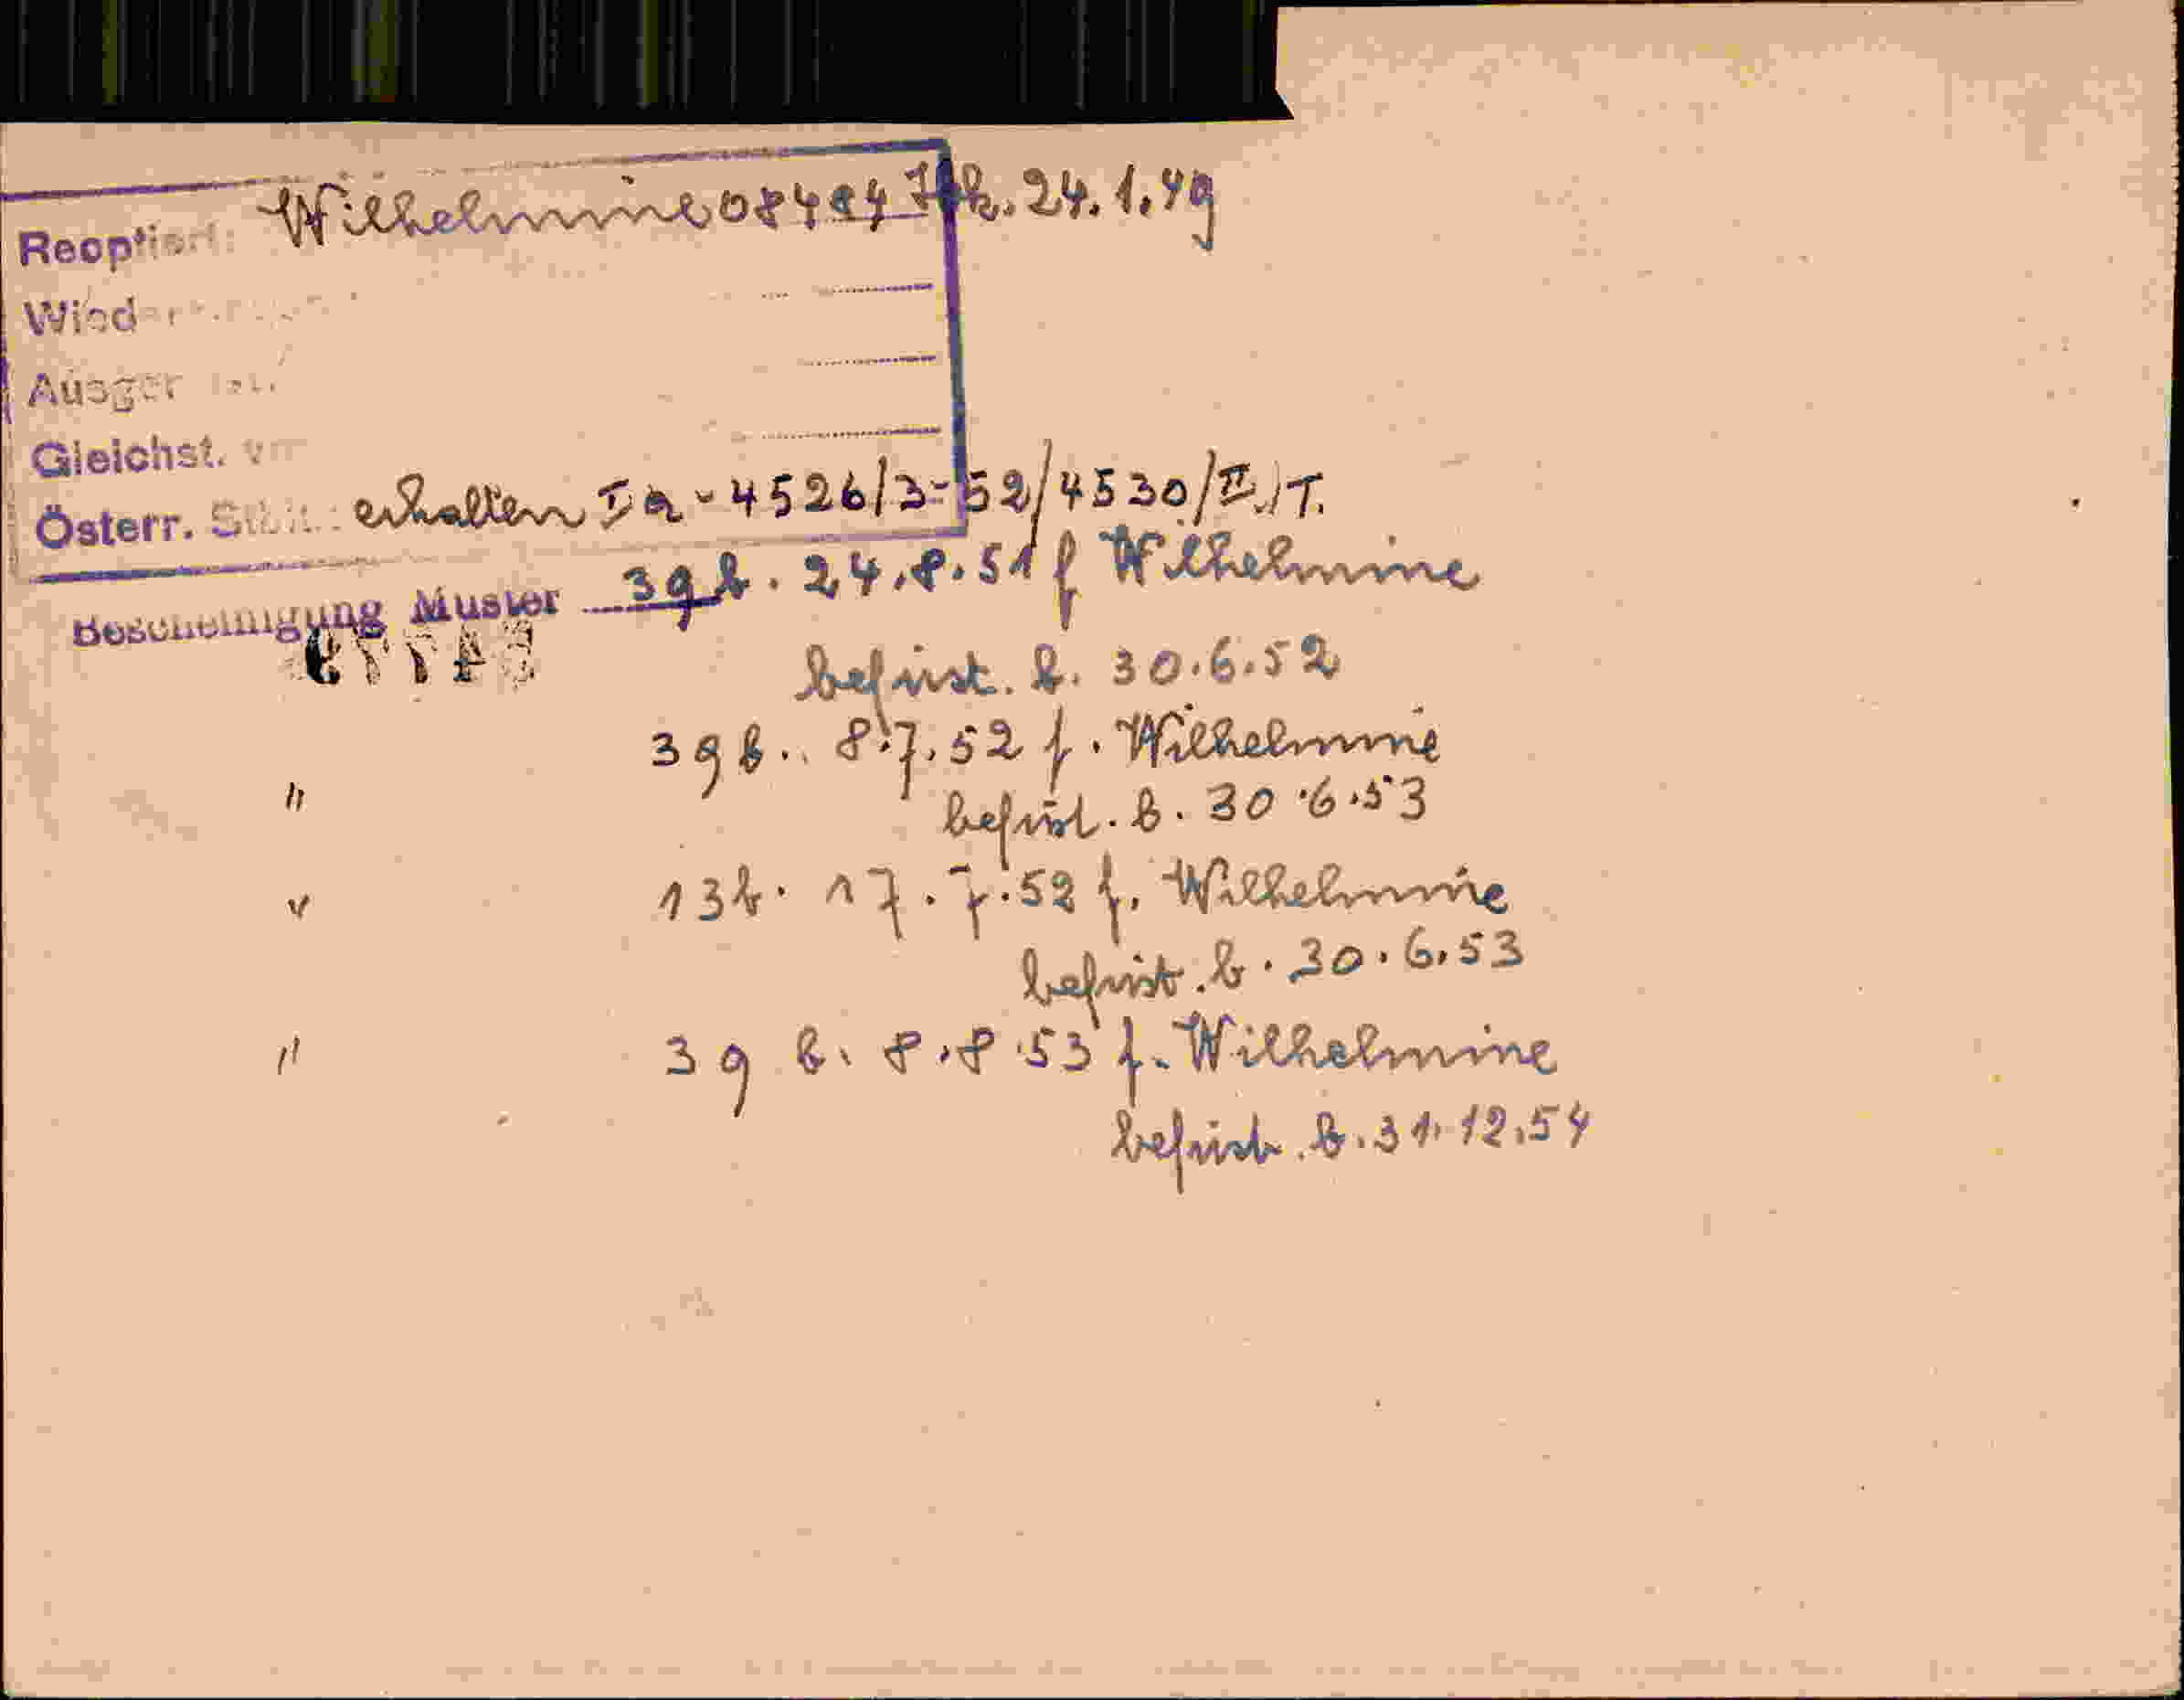 Reoptiert: Wilhelmine 08484 Jbk. 24.1.49
Wieder
Ausger
Gleichst. v
Österr. Stbst.: erhalten Ia-4526/3-52/4530/II/T.
Bescheinigung Muster 39 b. 24.8.51 f Wilhelmine
befrist. b. 30.6.52
" 39 b.. 8.7.52 f. Wilhelmine
befrist. b. 30.6.53
" 13 b. 17.7.52 f. Wilhelmine
befrist. b. 30.6.53
" 39 b. 8.8.53 f. Wilhelmine
befrist. b. 31.12.54